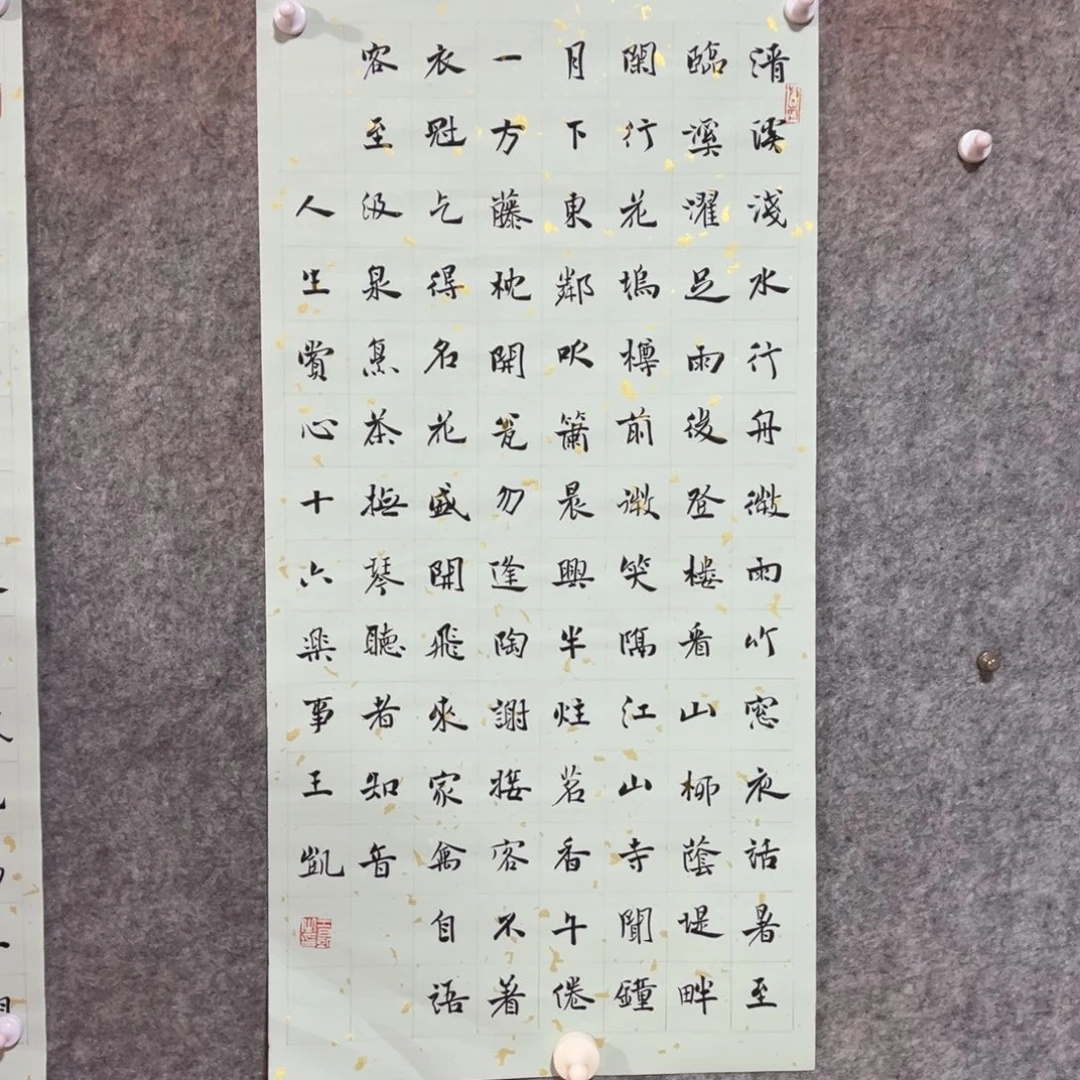 清溪淺水行舟微雨竹窓夜話暑至
臨溪濯足雨後登樓看山柳蔭堤畔
閑行花塢樽前微笑隔江山寺聞鐘
月下東鄰吹簫晨興半炷茗香午倦
一方藤枕開瓮勿逢陶謝接客不着
衣冠乞得名花盛開飛來家禽自語
客至汲泉烹茶撫琴聽者知音
人生賞心十六樂事王凱